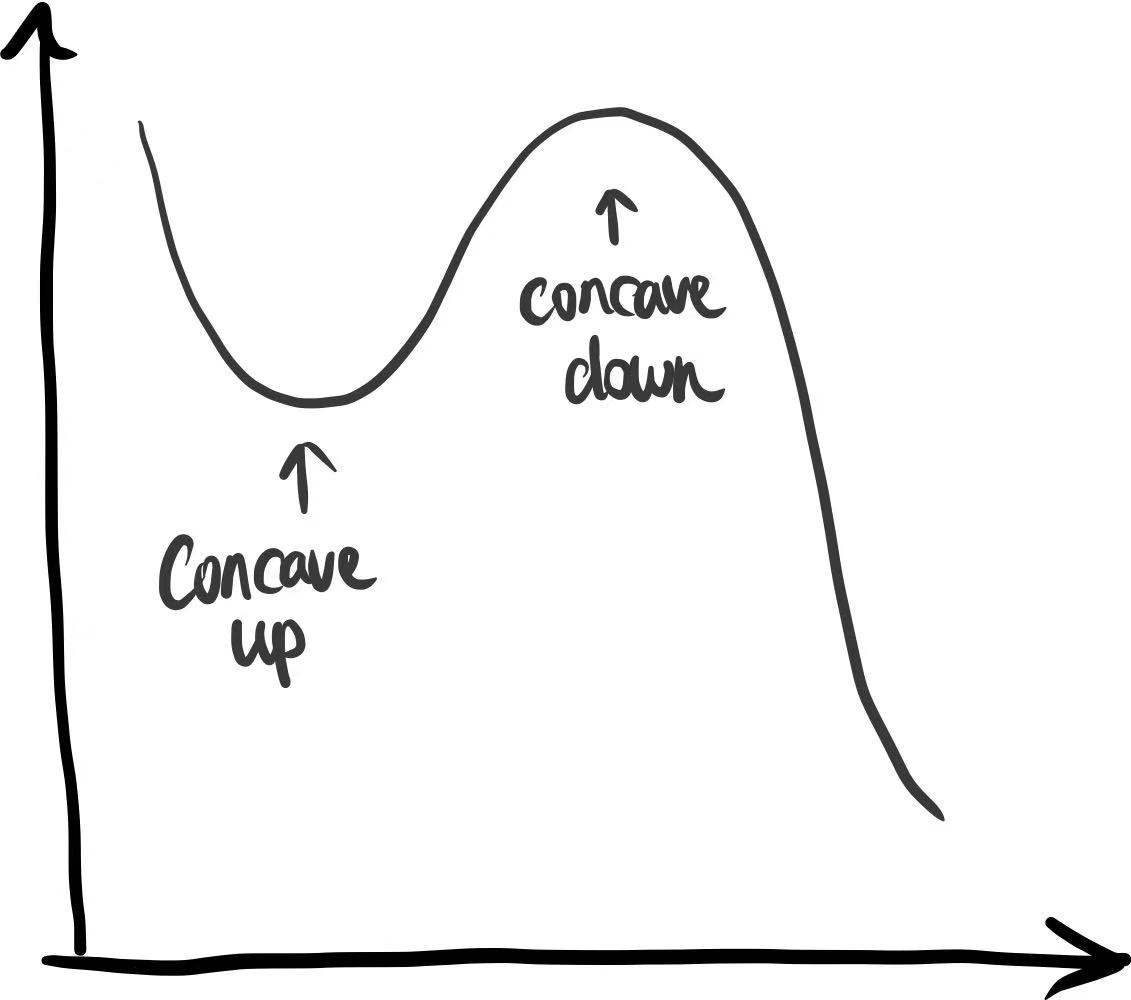 concave
down
Concave
up